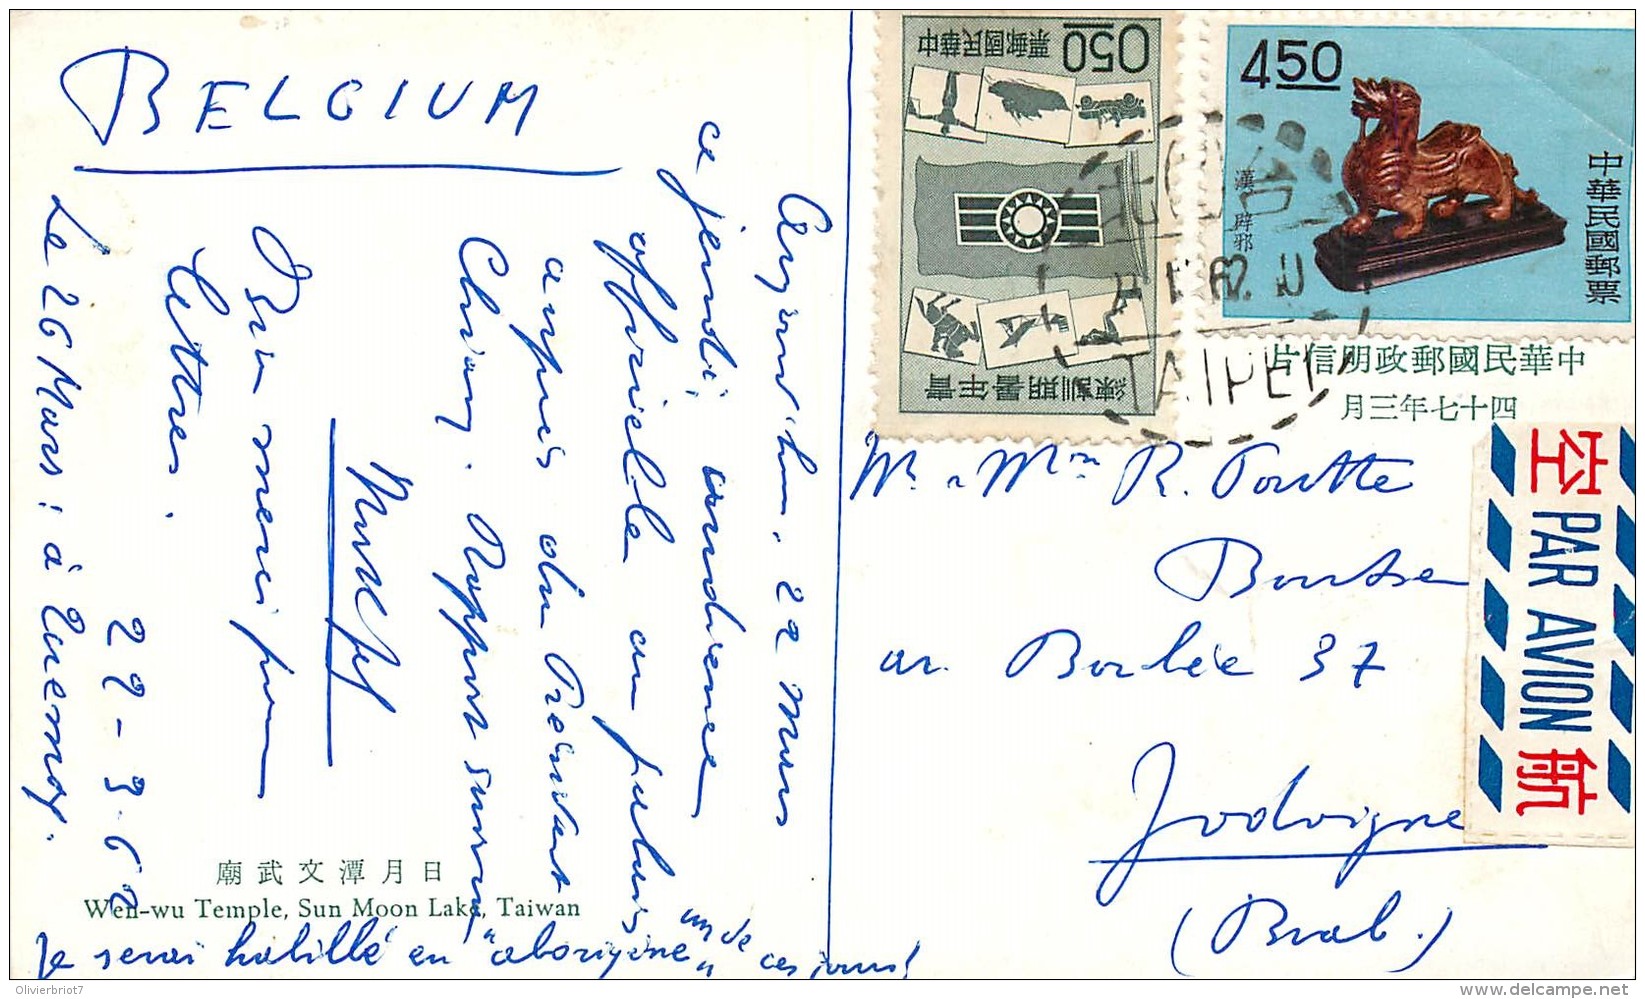 BELGIUM
Aujourd'hui, 22 mars
ce jeudi, audience
officielle au palais
auprès du Président
Chiang. Rapport suivra
Bien merci pour
lettres.
22-3-62
Le 26 Mars: à Quemoy.
Je serai habillé en "aborigène" un de ces jours!
日月潭文武廟
Wen-wu Temple, Sun Moon Lake, Taiwan
中華民國郵票
0.50
青年暑期訓練
4.50
漢 辟邪
中華民國郵票
台北
62
TAIPEI
中華民國郵政明信片
四十七年三月
航空
PAR AVION
Mr. Mme R. Poutte
av. 37
Jodoigne
(Brab.)
Olivierbriot7